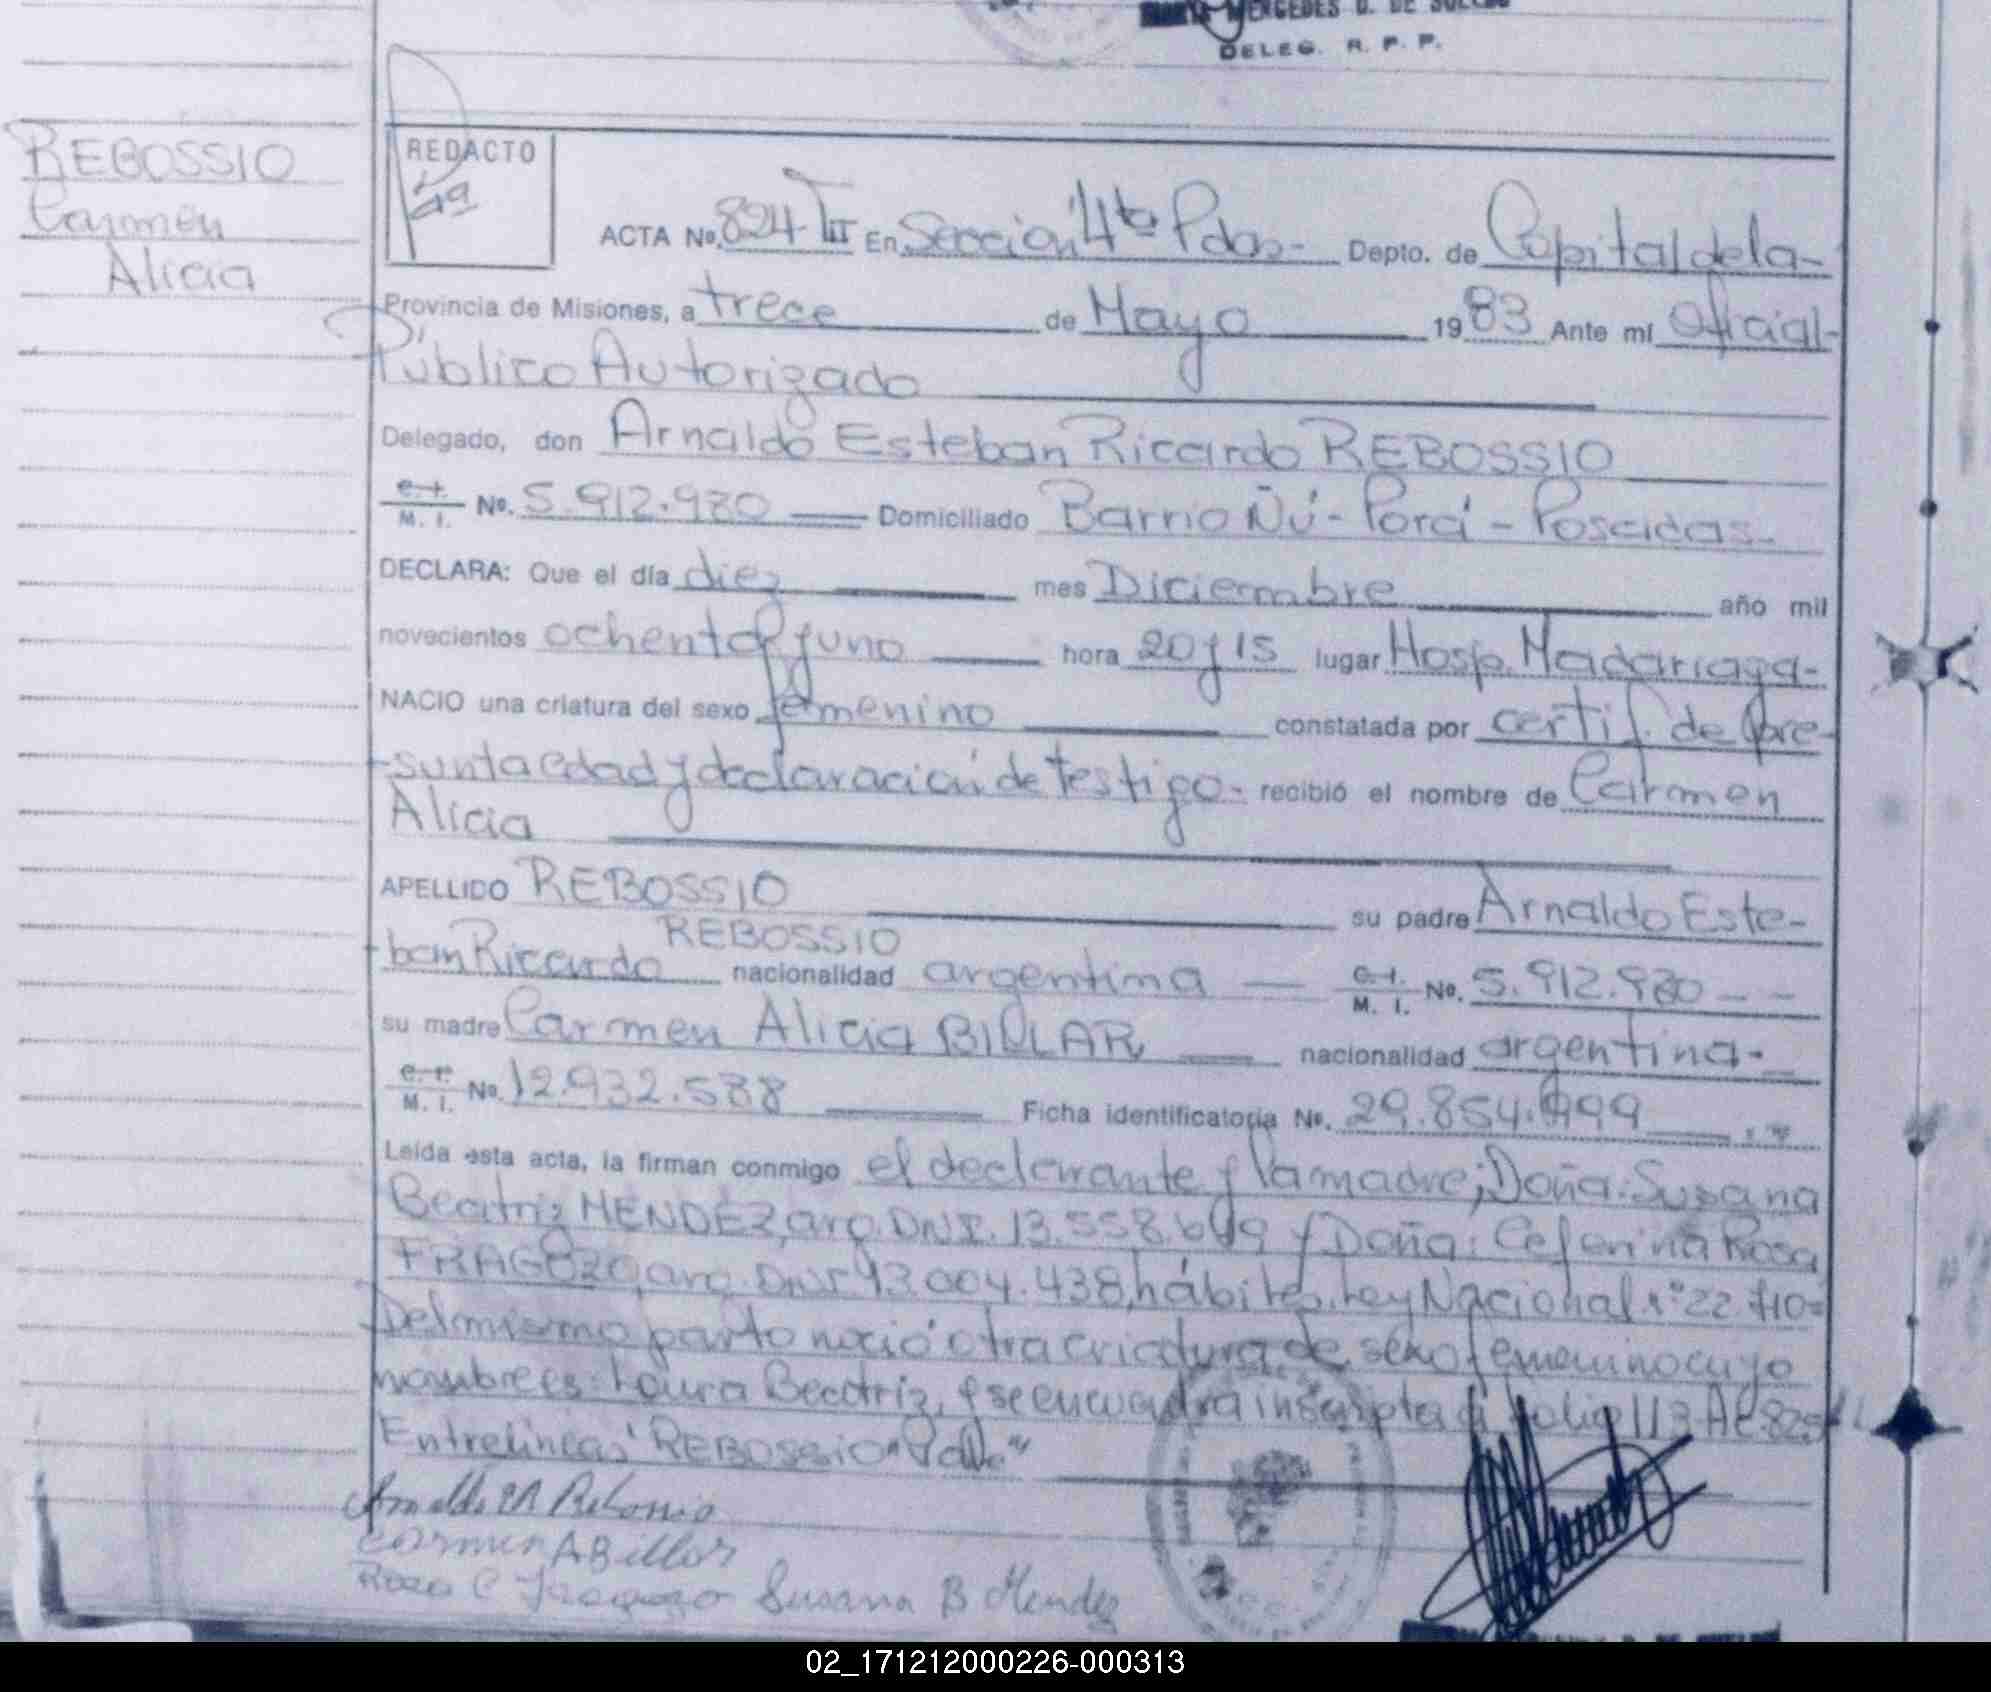 MERCEDES D. DE
DELEG. R. P. P.
REBOSSIO
Carmen
Alicia
REDACTO
ACTA No. 824-TIII En Sección 4ta Pdas- Depto. de Capital de la-
Provincia de Misiones, a trece de Mayo 1983 Ante mí Oficial-
Público Autorizado
Delegado, don Arnaldo Esteban Ricardo REBOSSIO
M. I. No. 5.912.980 Domiciliado Barrio Ñú-Porá-Posadas-
DECLARA: Que el día diez mes Diciembre año mil
novecientos ochenta y uno hora 20 y 15 lugar Hosp. Madariaga-
NACIO una criatura del sexo femenino constatada por certif. de pre-
-sunta edad y declaración de testigo- recibió el nombre de Carmen
Alicia
APELLIDO REBOSSIO su padre Arnaldo Este-
REBOSSIO
-ban Ricardo nacionalidad argentina M. I. No. 5.912.980 - -
su madre Carmen Alicia BILLAR nacionalidad argentina-
M. I. No. 12.932.588 Ficha identificatoria No. 29.854.999
Leída esta acta, la firman conmigo el declarante y la madre; Doña: Susana
Beatriz MENDEZ, arg. DNI. 13.558.649 y Doña: Ceferina Rosa
FRAGOZO, arg. DNI 93.004.438, hábiles. Ley Nacional n° 22.410=
Del mismo parto nació otra criatura de sexo femenino cuyo
nombre es: Laura Beatriz, y se encuentra inscripta al folio 113 Ac. 825
Entrelíneas "REBOSSIO" Vale
Arnaldo E R Rebossio
Carmen A Billar
Rosa C Fragozo Susana B Mendez
02_171212000226-000313